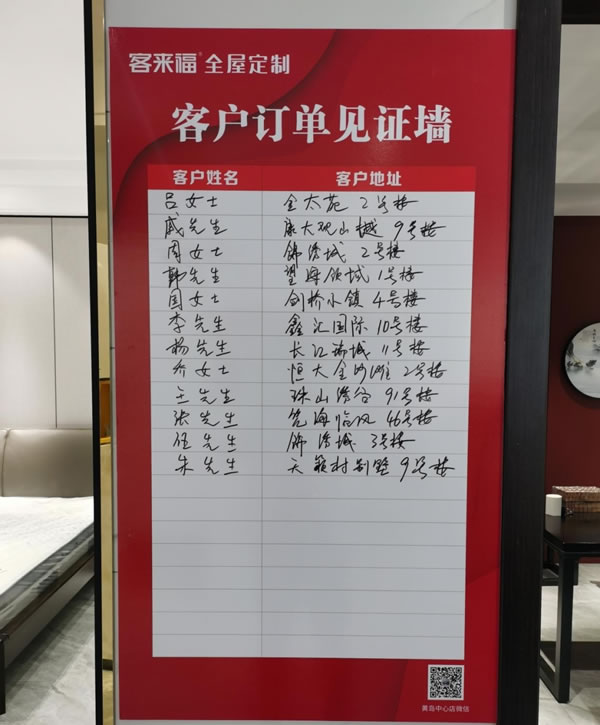 客来福® 全屋定制
客户订单见证墙
客户姓名 客户地址
吕女士 金太苑 2号楼
戚先生 康大观山樾 9号楼
周女士 锦绣城 2号楼
郭先生 望海领城 1号楼
国女士 剑桥小镇 4号楼
李先生 鑫汇国际 10号楼
杨先生 长江瑞城 11号楼
乔女士 恒大金沙滩 2号楼
王先生 珠山 谷 91号楼
张先生 海临风 46号楼
任先生 锦绣城 3号楼
朱先生 天籁村别墅 9号楼
黄岛中心店微信